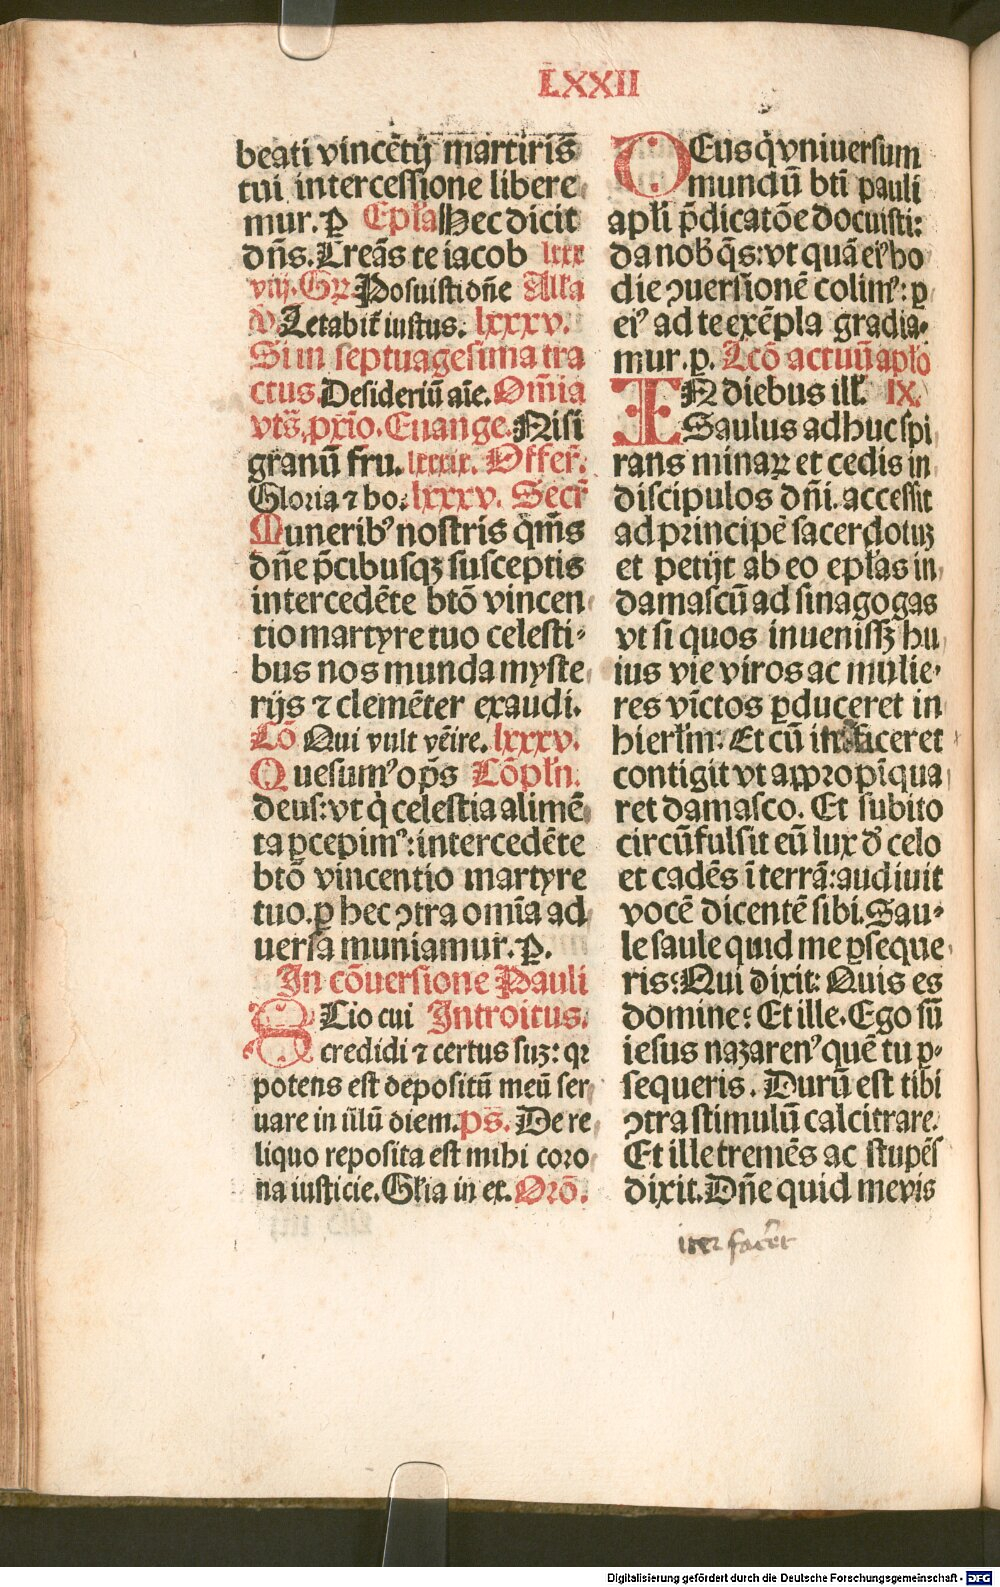 LXXII
beati vincẽtij martiris̃
tui intercessione libere
mur. ꝑ Epl̃a Hec dicit
dñs. Creãs te iacob lxx
viij. Gꝝ Posuisti dñe All̃a
V̾ Letabit̃ iustus. lxxxv.
Si in septuagesima tra
ctus. Desideriũ aĩe. Om̃ia
vts̃. pr̃io. Euange. Nisi
granũ fru. lxxxix. Offer̃.
Gloria ⁊ ho. lxxxv. Secr̃
Munerib⁹ nostris q̃m̃s
dñe p̃cibusqꝫ susceptis
intercedẽte btõ vincen
tio martyre tuo celesti⸗
bus nos munda myste
rijs ⁊ clemẽter exaudi.
Cõ Qui vult vẽire. lxxxv.
Quesum⁹ op̃s Cõpl̃n.
deus: vt q̇ celestia alimẽ
ta ꝑcepim⁹: intercedẽte
btõ vincentio martyre
tuo. ꝑ hec ꝯtra om̃ia ad
uersa muniamur. ꝑ.
In cõuersione Pauli
SCio cui Introitus.
credidi ⁊ certus suꝫ: qꝛ
potens est depositũ meũ ser
uare in illũ diem. ps. De re
liquo reposita est mihi coro
na iusticie. Gl̃ia in ex. Orõ.
DEus q̇ vniuersum
mundũ bt̃i pauli
apl̃i p̃dicatõe docuisti:
da nob̃ q̃s: vt quã ei⁹ ho
die ꝯuersionẽ colim⁹: ꝑ
ei⁹ ad te exẽpla gradia⸗
mur. ꝑ. Lcõ actuũ apl̃o
IN diebus ill̃. IX.
Saulus adhuc spi
rans minaꝝ et cedis in
discipulos dñi. accessit
ad principẽ sacerdotuꝫ
et petijt ab eo epl̃as in
damascũ ad sinagogas
vt si quos inuenissꝫ hu
ius vie viros ac mulie⸗
res vĩctos ꝑduceret in
hierl̃m. Et cũ faceret
contigit vt appropĩqua
ret damasco. Et subito
circũfulsit eũ lux d̾ celo
et cadẽs ĩ terrã: audiuit
vocẽ dicentẽ sibi. Sau⸗
le saule quid me ꝑseque
ris: Qui dixit: Quis es
domine: Et ille. Ego sũ
iesus nazaren⁹ quẽ tu ꝑ⸗
sequeris. Durũ est tibi
ꝯtra stimulũ calcitrare.
Et ille tremẽs ac stupẽs
dixit. Dñe quid me vis
iter facer̃t
Digitalisierung gefördert durch die Deutsche Forschungsgemeinschaft - DFG